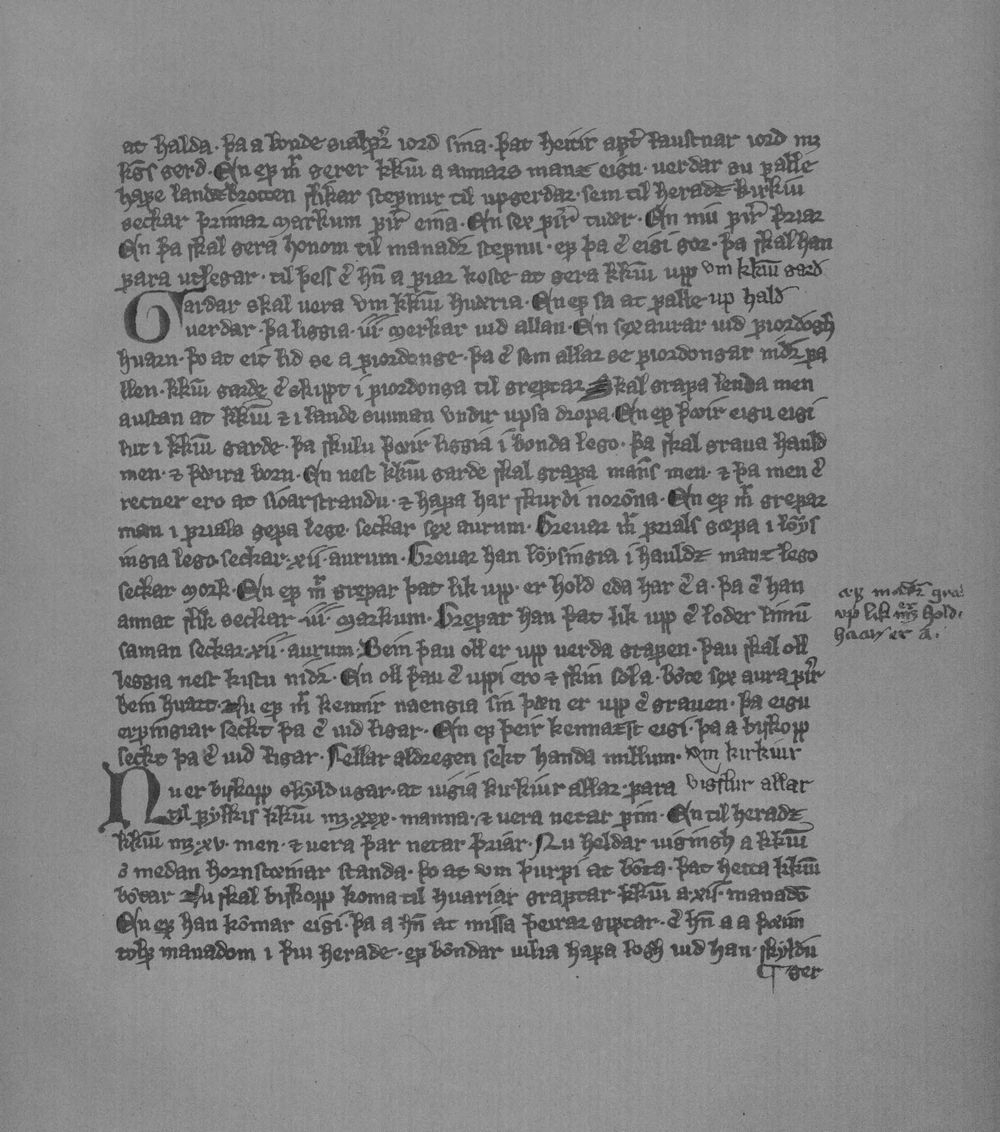 at halda. þa a bonde sialꝼꝛ iord sina. þat heitir apt raustnar iord mꝫ
kgs gerd. En eꝼ mr gerer kkiu a annars manz eigu. verdar su ꝼalle
haꝼe landzdrotten slikar steꝼnur til upgerdar. sem til heradz kirkiu
seckar þrimar markum ꝼir eina. En sex ꝼir tuær. En niu ꝼir þriar
En þa skal gera honom til manadr steꝼnu. eꝼ þa e eigi gor. þa skal han
ꝼara utlegar. til þess e hn a ꝼiar koste at gera kkiu upp vm kkiu gard
Gardar skal vera vm kkiu hueria. En eꝼ sa at ꝼalle up hald
verdar. þa liggia .iii. merkar uid allan. En sex aurar uid ꝼiordogh
huarn. þo at eit lid se a ꝼiordonge. þa e sem allar se ꝼiordongar nidr ꝼa
llen. kkiu garde e skipt i ꝼiordonga til greptar Skal graꝼa lenda men
austan at kkiu ⁊ i lande sunnan vndir upsa dropa. En eꝼ þæir eigu eigi
lut i kkiu garde. þa skulu þæir liggia i bonda lego. þa skal graua hauld
men. ⁊ þæira born. En nest kkiu garde skal graꝼa mans men. ⁊ þa men e
recner ero at sioarstrandu. ⁊ haꝼa har skurdi norona. En eꝼ mr greꝼar
man i ꝼrials geꝼa lege. seckar sex aurum. Greuar mr ꝼrials gæꝼa i löys
ingia lego seckar .xii. aurum. Greuar han löysingia i hauldz manz lego
seckar mork. En eꝼ mr greꝼar þat lik upp. er hold eda har e a. þa e han
annat slik seckar .iii. markum. Greꝼar han þat lik upp e loder limu
saman seckar .xii. aurum. Bein þau oll er upp verda graꝼen. þau skal oll
leggia nest kistu nidr. En oll þau e uppi ero ⁊ skin sola. böte sex aura ꝼir
bein huart. Nu eꝼ mr kennir naengia sin þæn er upp e grauen. þa eigu
erꝼingiar seckt þa e uid ligar. En eꝼ þeir kennazst eigi. þa a biskopp
seckt þa e uid ligar. Fellar aldregen sekt handa millum. vm kirkiur
Nu er biskopp skyldugar. at uigia kirkiur allar. ꝼara vigslur allar
til ꝼylkis kkiu mꝫ .xxx. manna. ⁊ vera netar ꝼim. En til heradz
kkiu mꝫ .xv. men. ⁊ vera þar netar þriar. Nu heldar uigingh a kkiu
medan hornstæinar standa. þo at vm þurꝼi at böta. þat heita kkiu
bötar Nu skal biskopp koma til huariar graptar kkiu a .xii. manado
En eꝼ han kömar eigi. þa a hn at missa þeirar giptar. e hn a a þæim
tolꝼ manadom i þui herade. eꝼ böndar uilia haꝼa logh uid han. skyldu
ger
up lik hold.
har er a.